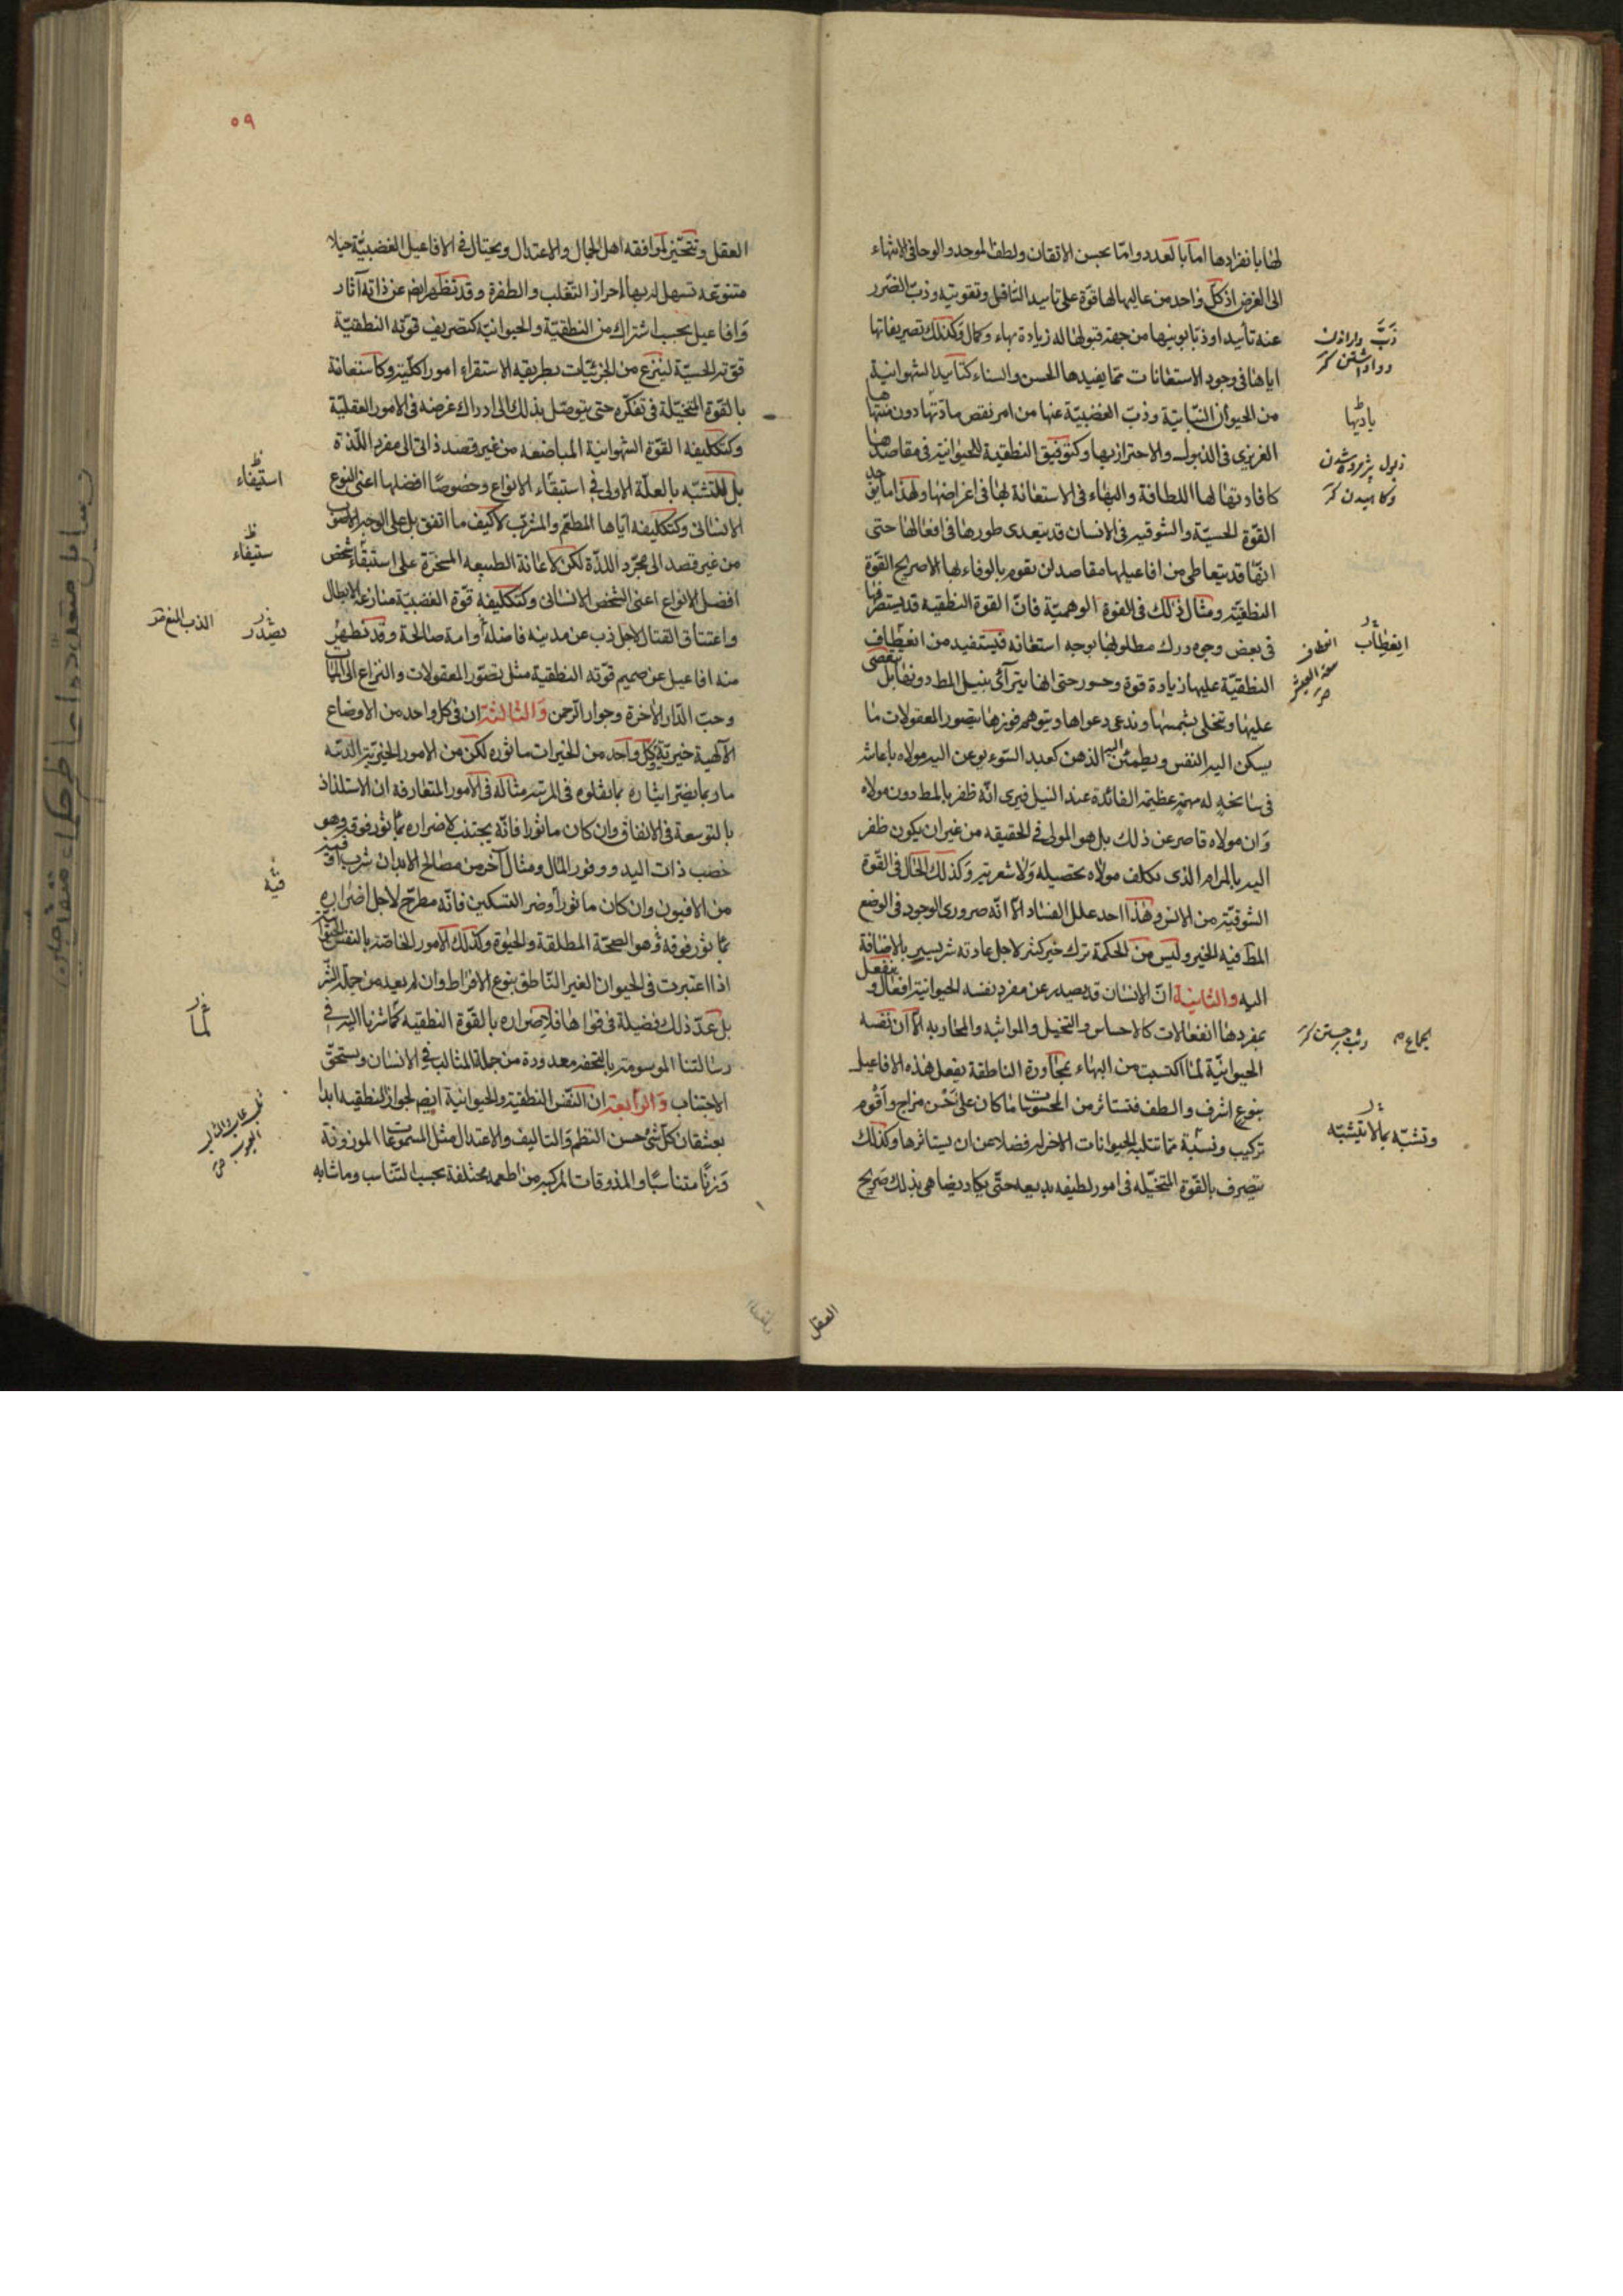 لها بانفرادها اما بالعدد واما بحسن الاتقان ولطف الموجد والوحا في الانتهاء
الى الغرض اذ كل واحد من عاليها لها قوة على تاييد السافل وتقويته وذب الضرر
عنه تأييدا وذبا بوينها من جهة قبولها له زيادة بهاء وكمال وكذلك تصريفاتها
اياها في وجود الاستعانات مما يفيدها الحسن والسناء كتاييد الشهوانية
من الحيوان النباتية وذب الغضبية عنها من امر نقص مادتها دون منتهاها
الغريزي في الذبول والاحتراز بها وكتوفيق النطقية للحيوانية في مقاصدها
كافادتها لها اللطافة والبهاء في الاستعانة لها في اغراضها ولهذا ما يوجد
القوة الحسية والشوقية في الانسان قد يتعدى طورها في افعالها حتى
انها قد يتعاطى من افاعيلها مقاصد لن يقوم بالوفاء لها الا صريح القوة
النطقية ومثال ذلك في القوة الوهمية فان القوة النطقية قد يستصرفها
في بعض وجوه درك مطلوبها بوجه استعانة فيستفيد من انعطاف
النطقية عليها زيادة قوة وجسور حتى انها يترآئى بنيل المط دونها بل يتعصى
عليها وتخلى بشمسها وتدعى دعواها ويتوهم فوزها بتصور المعقولات ما
يسكن اليه النفس ويطمئن اليه الذهن كعبد السوء يوعن اليه مولاه باعانته
في سانحة له مهمة عظيمة الفائدة عند النيل فيرى انه ظفر بالمط دون مولاه
وان مولاه قاصر عن ذلك بل هو المولى في الحقيقه من غير ان يكون ظفر
اليه بالمرام الذى تكلف مولاه تحصيله ولا شعر به وكذلك الحال في القوة
الشوقية من الانس وهذا احد علل الفساد الا انه ضرورى الوجود في الوضع
المط فيه الخير وليس من الحكمة ترك خير كثير لاجل عادته شر يسير بالاضافة
اليه والثانية ان الانسان قد يصدر عن مفرد نفسه الحيوانية افعال وينفعل
بمفردها انفعالات كالاحساس والتخيل والمواثبه والمحاربه الا ان نفسه
الحيوانية لما اكتسبت من البهاء بمجاورة الناطقة يفعل هذه الافاعيل
بنوع اشرف والطف فتستاثر من المحسوسات ما كان على احسن مزاج واقوم
تركيب ونسبة مما تتلبه الحيوانات الاخر له فضلا عن ان يستاثرها وكذلك
يتصرف بالقوة المتخيله في امور لطيفه بديعه حتى يكاد يضاهي بذلك صريح
ذب دراندن
وواداشتن كز
يادتها
ذبول پژمرده شدن
وكاهيدن كز
انعطاب
وثب برجستن كز
وتشبه بما لا يتشبه
العقل
٥٩
العقل وتتحين لموافقه اهل الجمال والاعتدال ويحتال في الافاعيل الغضبية حيلا
متنوعه تسهل له بها احراز التغلب والظفرة وقد تظهر ايضا عن ذاته آثار
وافاعيل بحسب اشتراك من النطقية والحيوانية كتصريف قوته النطقية
قوته الحسية لينزع من الجزئيات بطريقه الاستقراء امورا كلية وكاستعانة
بالقوة المتخيلة في تفكره حتى يتوصل بذلك الى ادراك غرضه في الامور العقلية
وكتكليفه القوة الشهوانية المباضعه من غير قصد ذاتى الى مفرد اللذة
بل للتشبه بالعلة الاولى في استبقاء الانواع وخصوصا افضلها اعنى النوع
الانسانى وكتكليفه اياها المطعم والمشرب لا كيف ما اتفق بل على الوجه الاصوب
من غير قصد الى مجرد اللذة لكن لاعانة الطبيعه المسخرة على استبقاء شخص
افضل الانواع اعنى الشخص الانسانى وكتكليفه قوة الغضبية منازعة الابطال
واعتناق القتال لاجل ذب عن مدينه فاضلة وامة صالحة وقد تظهر
منه افاعيل عن صميم قوته النطقية مثل تصور المعقولات والنزاع الى المآب
وحب الدار الاخرة وجوار الرحمن والثالثة ان في كل واحد من الاوضاع
الآلهية خيرية وكل واحد من الخيرات ماثوره لكن من الامور الخيرية الدنيه
ما ربما يضر ايثاره بما يعلوه في المرتبه مثاله في الامور المتعارفة ان الاستلذاذ
بالتوسعة في الانفاق وان كان ماثورا فانه يجتنب لاضراره بما ثور فوقه وهو
خصب ذات اليد ووفور المال ومثال آخر من مصالح الابدان شرب اوقية
من الافيون وان كان ماثورا وضر التسكين فانه مطرح لاجل اضراره
بما ثور فوقه وهو الصحة المطلقة والحيوة وكذلك الامور الخاصة بالنفس الحيوانية
اذا اعتبرت في الحيوان الغير الناطق بنوع الافراط وان لم يعد من جملة الشر
بل عد ذلك فضيلة في قواها فلاضراره بالقوة النطقية كما شرنا اليه في
رسالتنا الموسومة بالتحفه معدودة من جملة المثالب في الانسان ويستحق
الاجتناب والرابعة ان النفس النطقية والحيوانية ايضا لجوار النطقيه ابدا
يعشقان كل شئ حسن النظم والتاليف والاعتدال مثل المسموعات الموزونة
وزنا متناسبا والمذوقات المركبه من اطعمه مختلفة بحسب التناسب وما شابه
استيفاء
ستيفاء
يصدر
الذب المنع
قيه
رسایل متعدده از حکماء متقدمین